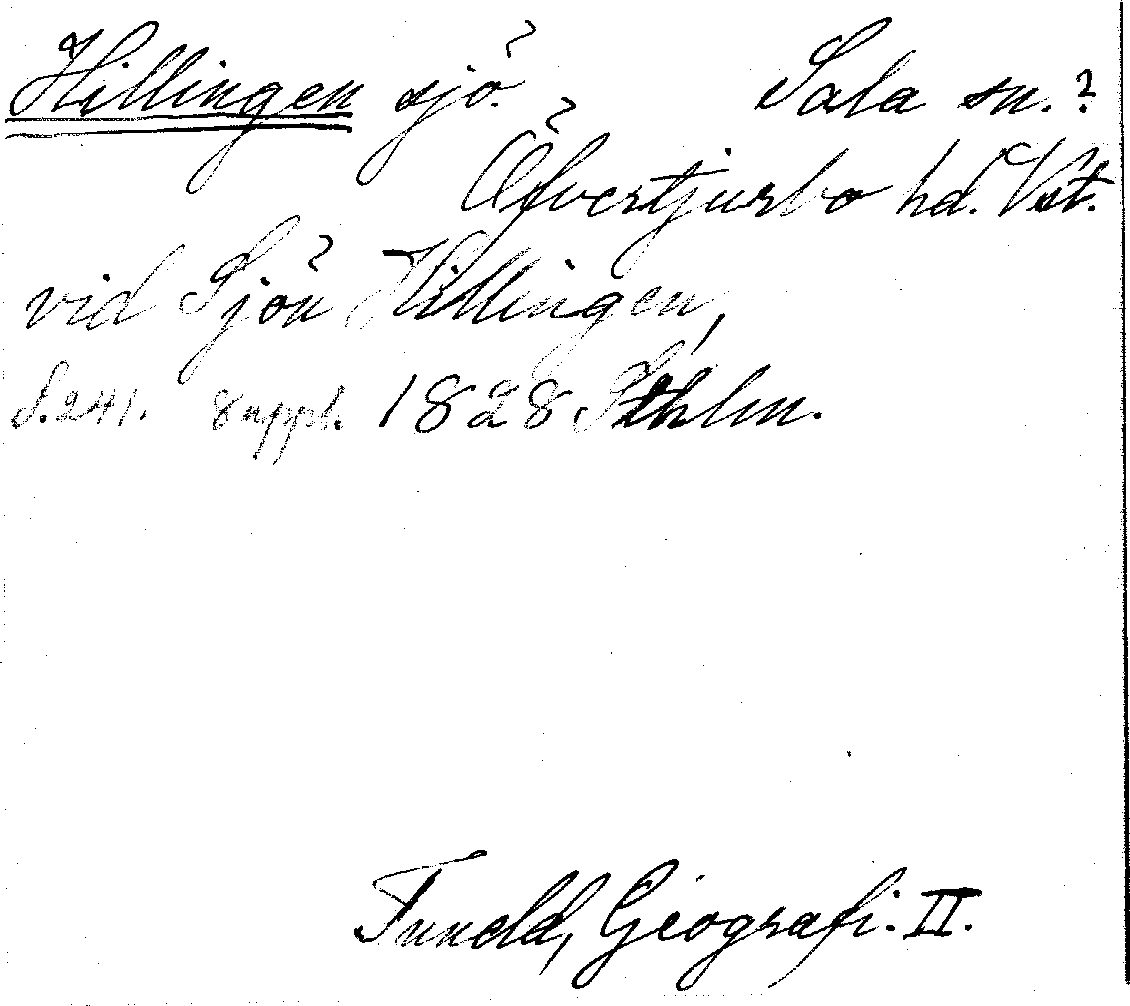 Hillingen sjö. Sala sn.?
Öfvertjurbo hd. Vst.
vid Sjön Hillingen,
S. 241. 8 uppl. 1828 Sthlm.
Tuneld, Geografi. II.